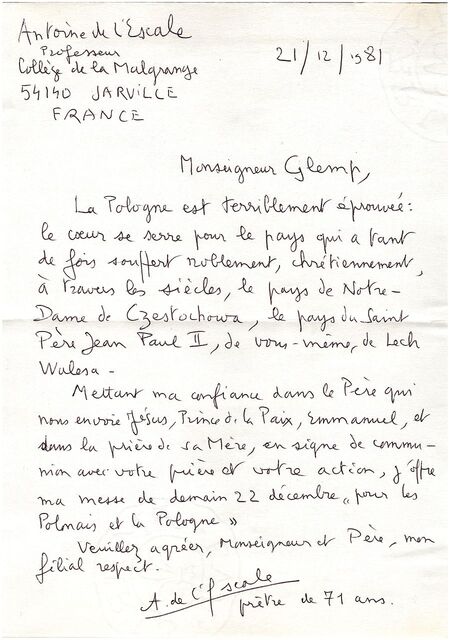 Antoine de l'Escale
Professeur
Collège de la Malgrange
54140 JARVILLE
FRANCE
21/12/1981
Monseigneur Glemp,
La Pologne est terriblement éprouvée :
le cœur se serre pour le pays qui a tant
de fois souffert noblement, chrétiennement,
à travers les siècles, le pays de Notre-
Dame de Czestochowa, le pays du Saint
Père Jean Paul II, de vous-même, de Lech
Walesa -
Mettant ma confiance dans le Père qui
nous envoie Jésus, Prince de la Paix, Emmanuel, et
dans la prière de sa Mère, en signe de commu-
nion avec votre prière et votre action, j'offre
ma messe de demain 22 décembre « pour les
Polonais et la Pologne »
Veuillez agréer, Monseigneur et Père, mon
filial respect.
A. de l'Escale
prêtre de 71 ans.